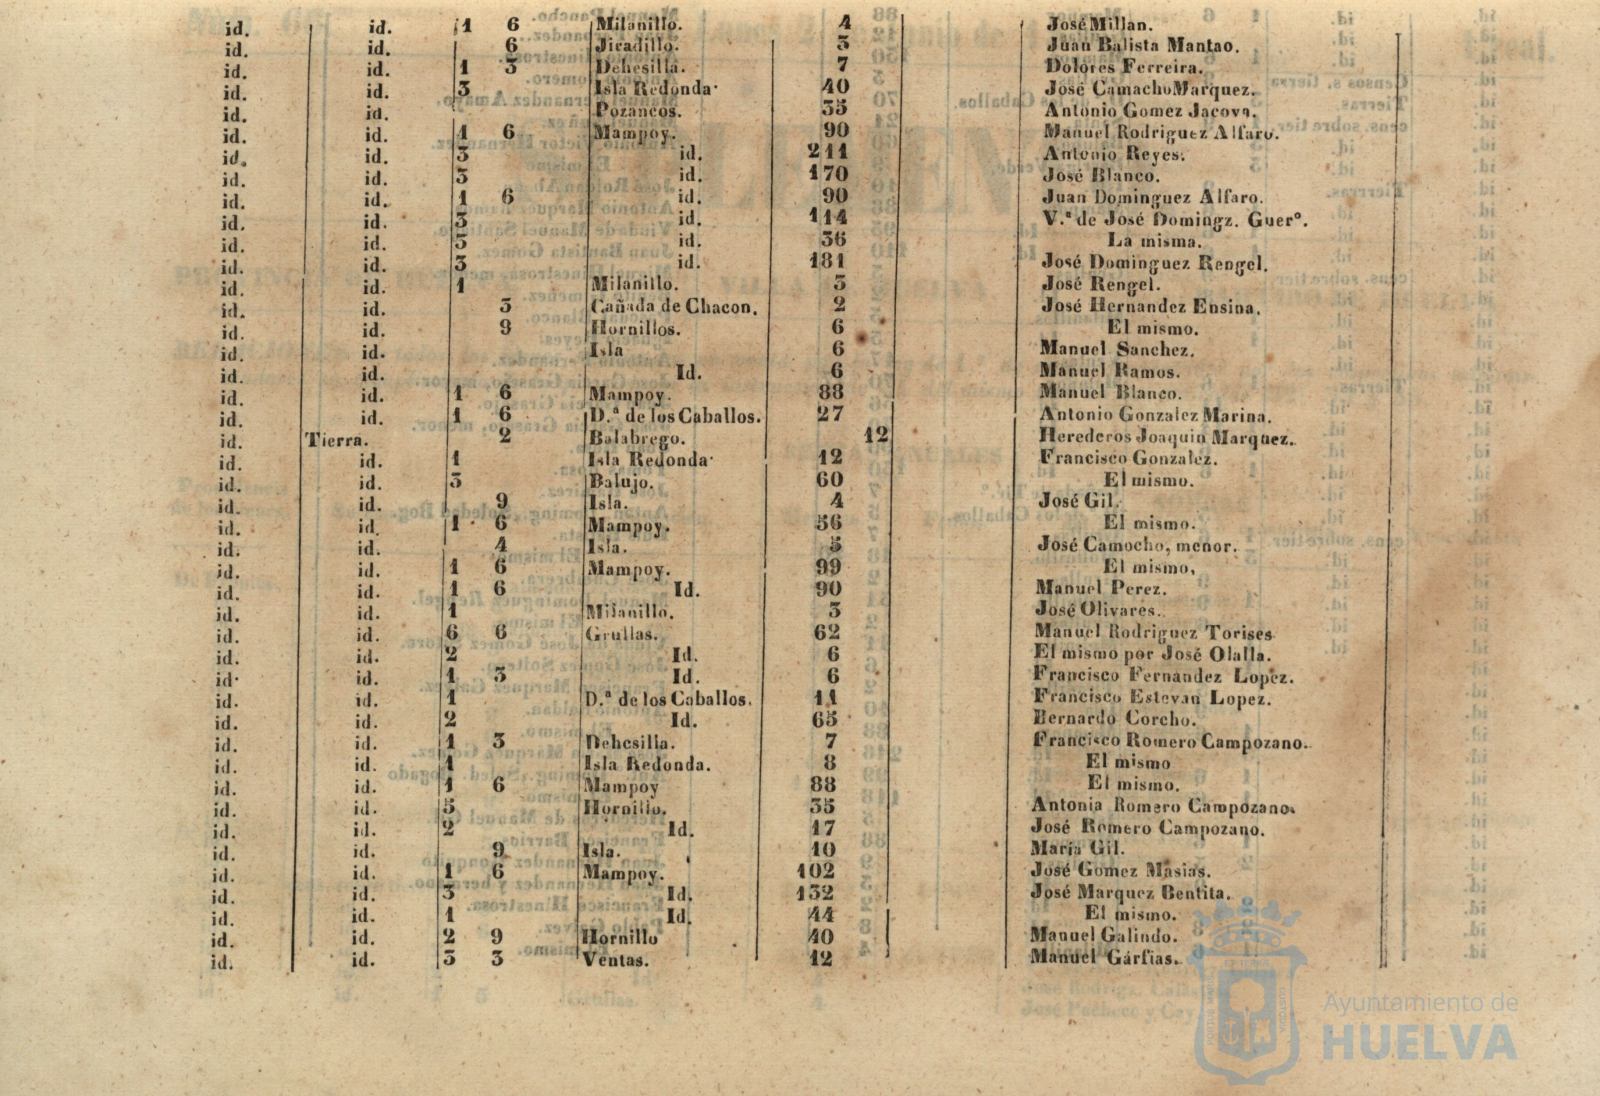 id. id. 1 6 Milanillo. 4 José Millan.
id. id. 6 Jiradillo. 3 Juan Balista Mantao.
id. id. 1 3 Dehesilla. 7 Dolores Ferreira.
id. id. 3 Isla Redonda 40 José Camacho Marquez.
id. id. Pozancos. 35 Antonio Gomez Jacova.
id. id. 1 6 Mampoy. 90 Manuel Rodriguez Alfaro.
id. id. 3 id. 211 Antonio Reyes.
id. id. 3 id. 170 José Blanco.
id. id. 1 6 id. 90 Juan Dominguez Alfaro.
id. id. 3 id. 114 V.ª de José Domingz. Guerº.
id. id. 3 id. 36 La misma.
id. id. 3 id. 181 José Dominguez Rengel.
id. id. 1 Milanillo. 3 José Rengel.
id. id. 3 Cañada de Chacon. 2 José Hernandez Ensina.
id. id. 9 Hornillos. 6 El mismo.
id. id. Isla 6 Manuel Sanchez.
id. id. Id. 6 Manuel Ramos.
id. id. 1 6 Mampoy. 88 Manuel Blanco.
id. id. 1 6 D.ª de los Caballos. 27 Antonio Gonzalez Marina.
id. Tierra. 2 Balabrego. 12 Herederos Joaquin Marquez.
id. id. 1 Isla Redonda 12 Francisco Gonzalez.
id. id. 3 Balujo. 60 El mismo.
id. id. 9 Isla. 4 José Gil.
id. id. 1 6 Mampoy. 56 El mismo.
id. id. 4 Isla. 5 José Camocho, menor.
id. id. 1 6 Mampoy. 99 El mismo,
id. id. 1 6 Id. 90 Manuel Perez.
id. id. 1 Milanillo. 3 José Olivares.
id. id. 6 6 Grullas. 62 Manuel Rodriguez Torises
id. id. 2 Id. 6 El mismo por José Olalla.
id. id. 1 3 Id. 6 Francisco Fernandez Lopez.
id. id. 1 D.ª de los Caballos. 11 Francisco Estevan Lopez.
id. id. 2 Id. 65 Bernardo Corcho.
id. id. 1 3 Dehesilla. 7 Francisco Romero Campozano.
id. id. 1 Isla Redonda. 8 El mismo
id. id. 1 6 Mampoy 88 El mismo.
id. id. 5 Hornillo. 35 Antonia Romero Campozano.
id. id. 2 Id. 17 José Romero Campozano.
id. id. 9 Isla. 10 María Gil.
id. id. 1 6 Mampoy. 102 José Gomez Masias.
id. id. 3 Id. 132 José Marquez Bentita.
id. id. 1 Id. 44 El mismo.
id. id. 2 9 Hornillo 40 Manuel Galindo.
id. id. 3 3 Ventas. 12 Manuel Garfias.
Ayuntamiento de
HUELVA